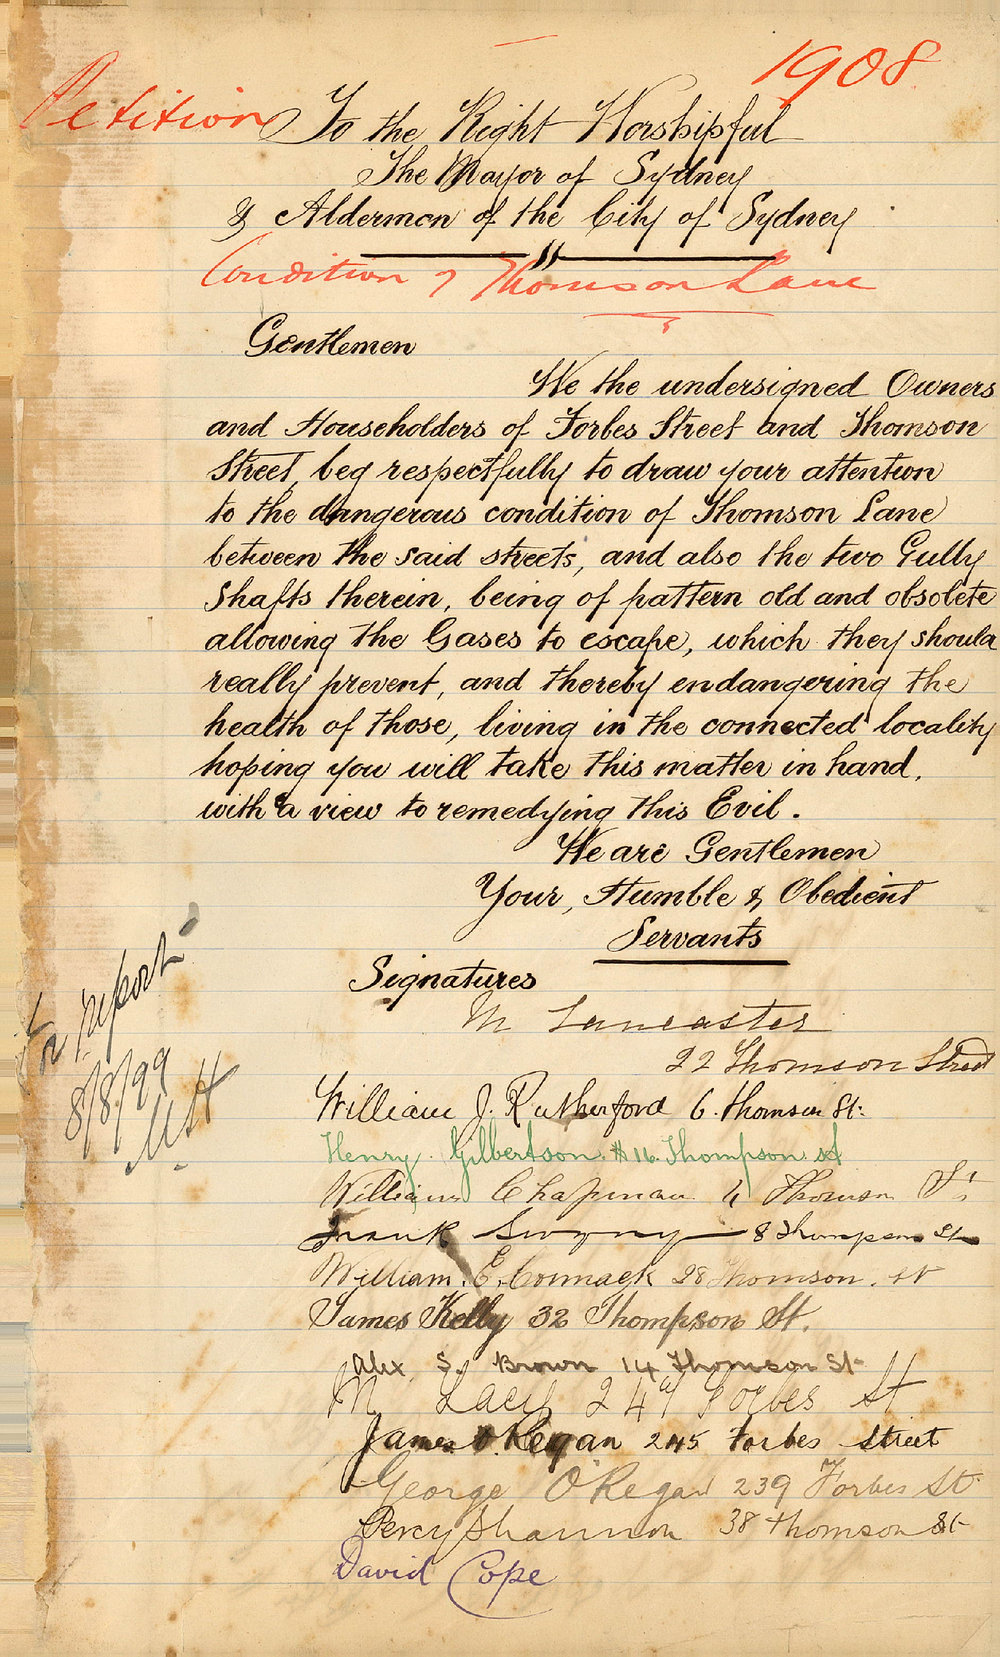 1908
Petition
To the Right Worshipful
The Mayor of Sydney
& Aldermen of the City of Sydney
Condition of Thomson Lane
Gentlemen
We the undersigned Owners
and Householders of Forbes Street and Thomson
Street, beg respectfully to draw your attention
to the dangerous condition of Thomson Lane
between the said streets, and also the two Gully
Shafts therein, being of pattern old and obsolete
allowing the Gases to escape, which they should
really prevent, and thereby endangering the
health of those, living in the connected locality
hoping you will take this matter in hand,
with a view to remedying this Evil.
We are Gentlemen
Your, Humble & Obedient
Servants
For report
8/8/99
Signatures
M Lancaster
22 Thomson Street
William J. Rutherford 6. Thomson St:
Henry. Gilbertson. # 16. Thompson st
William Chapman 4 Thomson St.
Frank 8 Thompson St
William. E. Cormack 28 Thomson. st
James Kelly 32 Thompson St.
Alex S. Brown 14 Thomson St
M Lacey 247 Forbes St
James O'Regan 245 Forbes Street
George O'Regan 239 Forbes St
Percy Shannon 38 Thomson St
David Cope